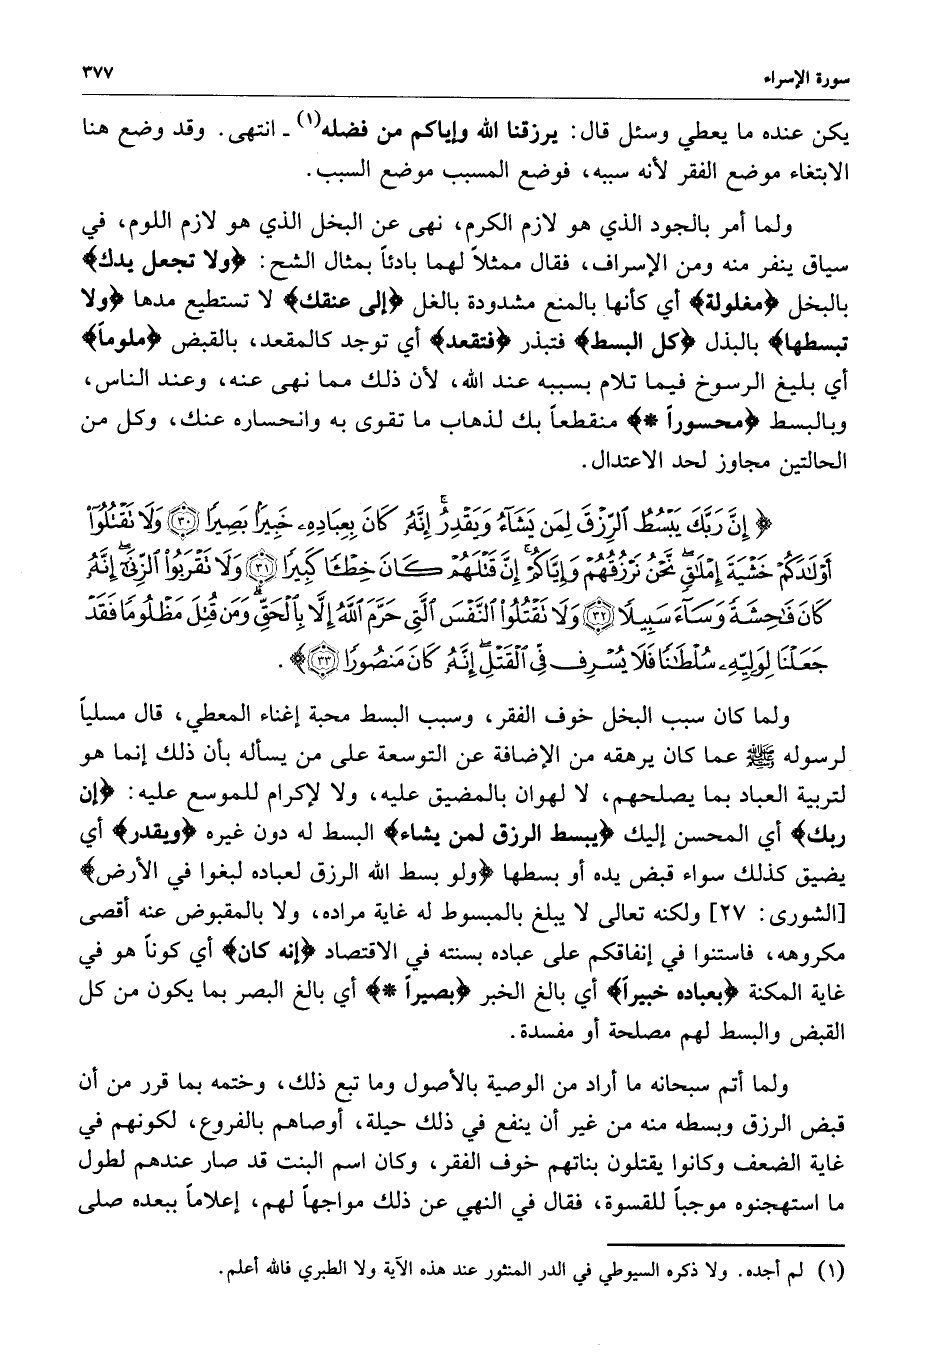 سورة الإسراء
٣٧٧
يكن عنده ما يعطي وسئل قال: يرزقنا الله وإياكم من فضله(١) ـ انتهى. وقد وضع هنا
الابتغاء موضع الفقر لأنه سببه، فوضع المسبب موضع السبب.
ولما أمر بالجود الذي هو لازم الكرم، نهى عن البخل الذي هو لازم اللوم، في
سياق ينفر منه ومن الإسراف، فقال ممثلاً لهما بادئاً بمثال الشح: ﴿ولا تجعل يدك﴾
بالبخل ﴿مغلولة﴾ أي كأنها بالمنع مشدودة بالغل ﴿إلى عنقك﴾ لا تستطيع مدها ﴿ولا
تبسطها﴾ بالبذل ﴿كل البسط﴾ فتبذر ﴿فتقعد﴾ أي توجد كالمقعد، بالقبض ﴿ملوماً﴾
أي بليغ الرسوخ فيما تلام بسببه عند الله، لأن ذلك مما نهى عنه، وعند الناس،
وبالبسط ﴿محسوراً *﴾ منقطعاً بك لذهاب ما تقوى به وانحساره عنك، وكل من
الحالتين مجاوز لحد الاعتدال.
﴿إِنَّ رَبَّكَ يَبْسُطُ ٱلرِّزْقَ لِمَن يَشَآءُ وَيَقْدِرُ ۚ إِنَّهُۥ كَانَ بِعِبَادِهِۦ خَبِيرًۢا بَصِيرًا ﴿٣٠﴾ وَلَا تَقْتُلُوٓا۟
أَوْلَٰدَكُمْ خَشْيَةَ إِمْلَٰقٍ ۖ نَّحْنُ نَرْزُقُهُمْ وَإِيَّاكُمْ ۚ إِنَّ قَتْلَهُمْ كَانَ خِطْـًٔا كَبِيرًا ﴿٣١﴾ وَلَا تَقْرَبُوا۟ ٱلزِّنَىٰٓ ۖ إِنَّهُۥ
كَانَ فَٰحِشَةً وَسَآءَ سَبِيلًا ﴿٣٢﴾ وَلَا تَقْتُلُوا۟ ٱلنَّفْسَ ٱلَّتِى حَرَّمَ ٱللَّهُ إِلَّا بِٱلْحَقِّ ۗ وَمَن قُتِلَ مَظْلُومًا فَقَدْ
جَعَلْنَا لِوَلِيِّهِۦ سُلْطَٰنًا فَلَا يُسْرِف فِّى ٱلْقَتْلِ ۖ إِنَّهُۥ كَانَ مَنصُورًا ﴿٣٣﴾﴾.
ولما كان سبب البخل خوف الفقر، وسبب البسط محبة إغناء المعطي، قال مسلياً
لرسوله ﷺ عما كان يرهقه من الإضافة عن التوسعة على من يسأله بأن ذلك إنما هو
لتربية العباد بما يصلحهم، لا لهوان بالمضيق عليه، ولا لإكرام للموسع عليه: ﴿إن
ربك﴾ أي المحسن إليك ﴿يبسط الرزق لمن يشاء﴾ البسط له دون غيره ﴿ويقدر﴾ أي
يضيق كذلك سواء قبض يده أو بسطها ﴿ولو بسط الله الرزق لعباده لبغوا في الأرض﴾
[الشورى: ٢٧] ولكنه تعالى لا يبلغ بالمبسوط له غاية مراده، ولا بالمقبوض عنه أقصى
مكروهه، فاستنوا في إنفاقكم على عباده بسنته في الاقتصاد ﴿إنه كان﴾ أي كوناً هو في
غاية المكنة ﴿بعباده خبيراً﴾ أي بالغ الخبر ﴿بصيراً *﴾ أي بالغ البصر بما يكون من كل
القبض والبسط لهم مصلحة أو مفسدة.
ولما أتم سبحانه ما أراد من الوصية بالأصول وما تبع ذلك، وختمه بما قرر من أن
قبض الرزق وبسطه منه من غير أن ينفع في ذلك حيلة، أوصاهم بالفروع، لكونهم في
غاية الضعف وكانوا يقتلون بناتهم خوف الفقر، وكان اسم البنت قد صار عندهم لطول
ما استهجنوه موجباً للقسوة، فقال في النهي عن ذلك مواجهاً لهم، إعلاماً ببعده صلى
(١) لم أجده. ولا ذكره السيوطي في الدر المنثور عند هذه الآية ولا الطبري فالله أعلم.